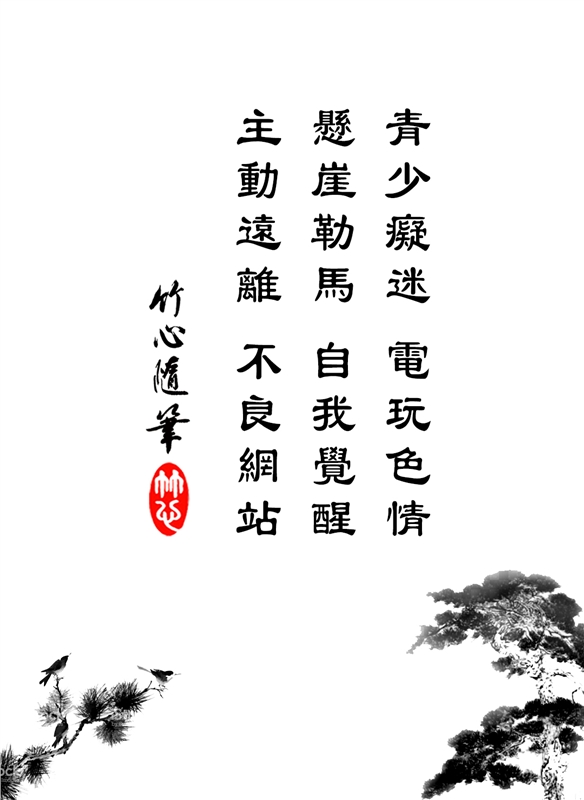 青少癡迷 電玩色情
懸崖勒馬 自我覺醒
主動遠離 不良網站
竹心隨筆